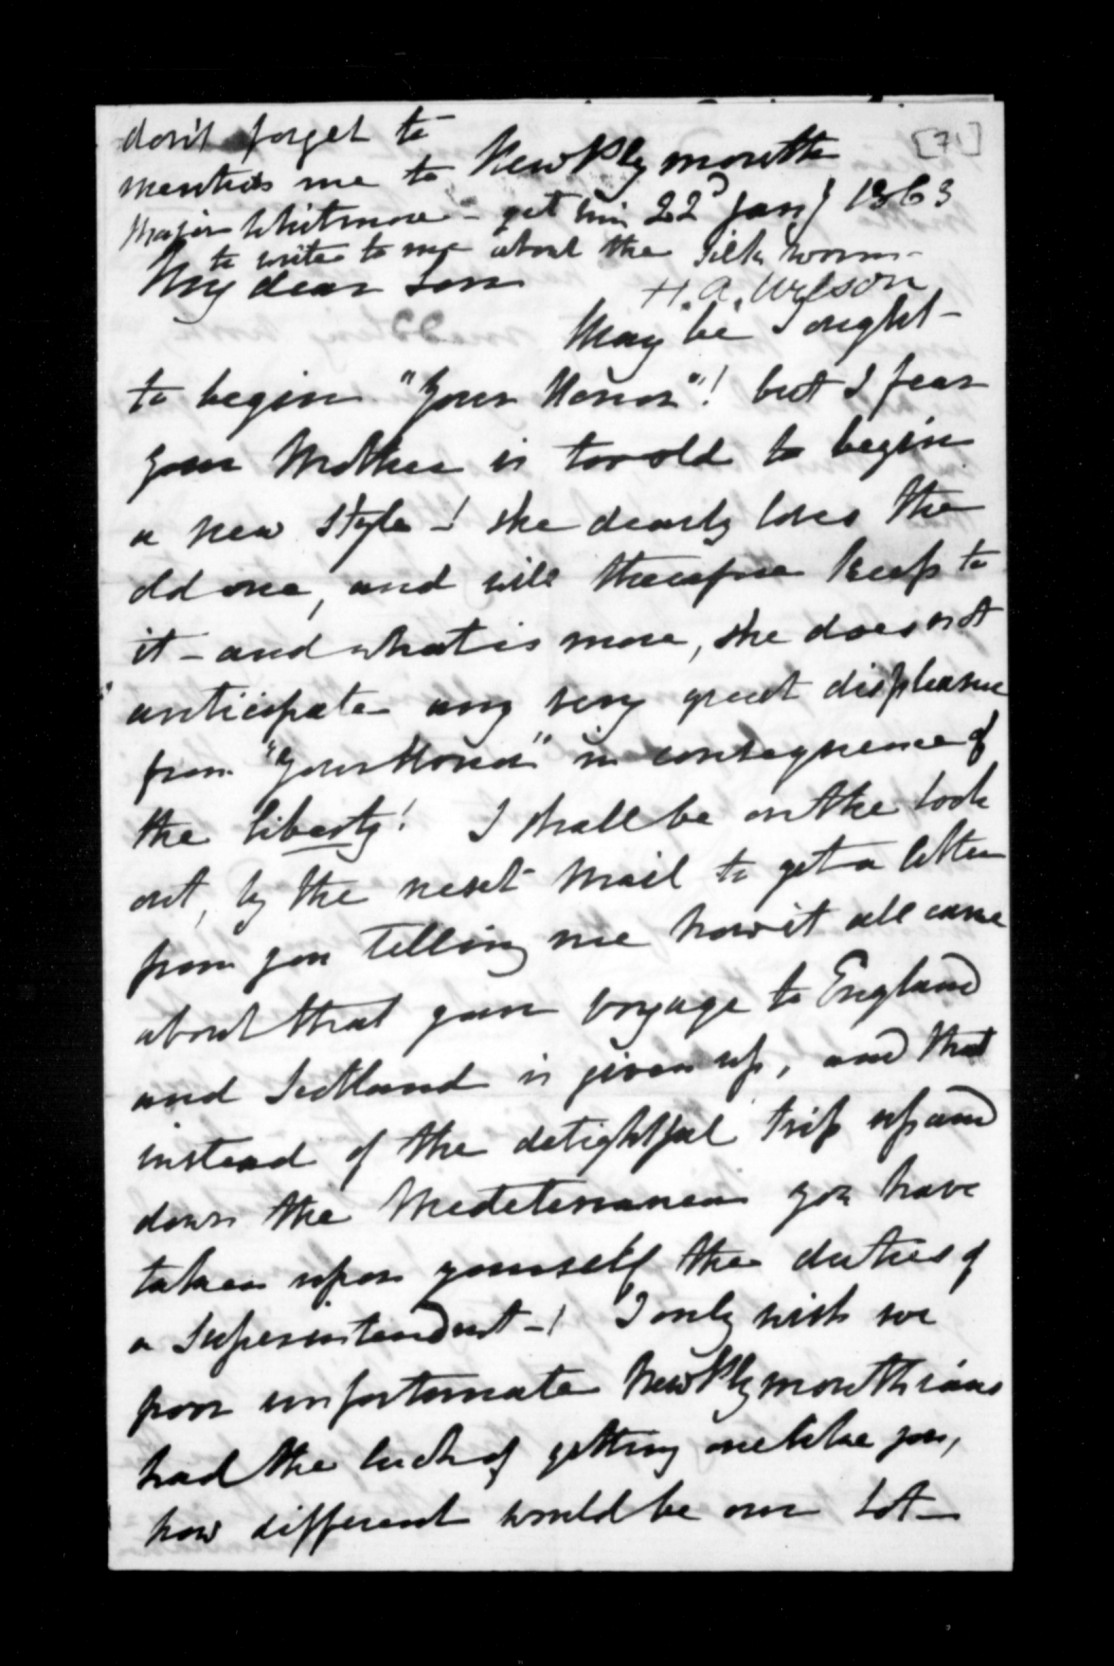 don't forget to
mention me to
Major Whitmore - get him
to write to me about the silk worm -
[71]
New Plymouth
22d Jany 1863
H. A. Wilson
My dear Son
May be I ought -
to begin "Your Honor"! but I fear
your Mother is too old to begin
a new style -! she dearly loves the
old one, and will therefore keep to
it - and what is more, she does not
anticipate any very great displeasure
from "Your Honor" in consequence of
the liberty! I shall be on the look
out, by the next Mail to get a letter
from you telling me how it all came
about that your voyage to England
and Scotland is given up, and that
instead of the delightful trip up and
down the Mediteranean you have
taken upon yourself the duties of
a Superintendent -! I only wish we
poor unfortunate New Plymouthians
had the luck of getting one like you,
how different would be our lot -